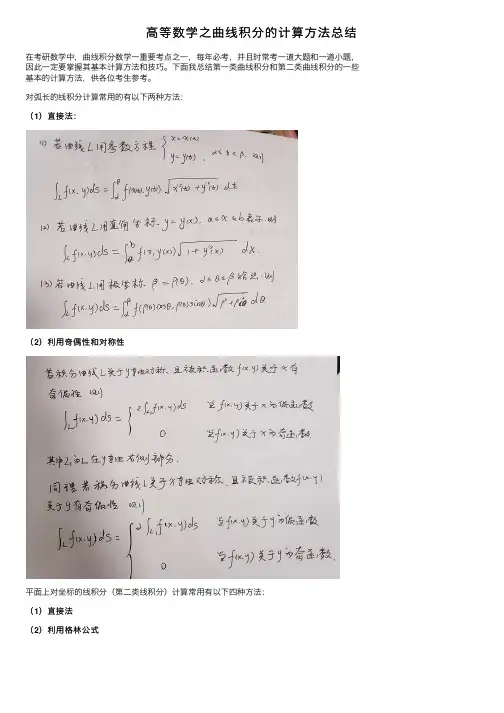 高等数学之曲线积分的计算方法总结
在考研数学中，曲线积分数学一重要考点之一，每年必考，并且时常考一道大题和一道小题，
因此一定要掌握其基本计算方法和技巧。下面我总结第一类曲线积分和第二类曲线积分的一些
基本的计算方法，供各位考生参考。
对弧长的线积分计算常用的有以下两种方法：
（1）直接法：
(1) 若曲线L用参数方程 { x=x(t) y=y(t) , α≤t≤β, 则
∫_L f(x,y)ds = ∫_α^β f(x(t),y(t)) √(x'²(t)+y'²(t)) dt
(2) 若曲线L用直角坐标 y=y(x), a≤x≤b表示, 则
∫_L f(x,y)ds = ∫_a^b f(x,y(x)) √(1+y'²(x)) dx.
(3) 若曲线L用极坐标 ρ=ρ(θ), α≤θ≤β给出, 则
∫_L f(x,y)ds = ∫_α^β f(ρ(θ)cosθ, ρ(θ)sinθ) √(ρ²+ρ'²) dθ
（2）利用奇偶性和对称性
若积分曲线L关于y轴对称、且被积函数f(x,y)关于x有
奇偶性 则
∫_L f(x,y)ds = { 2∫_{L₁} f(x,y)ds 当f(x,y)关于x为偶函数
0 当f(x,y)关于x为奇函数
其中L₁为L在y轴右侧部分.
同理若积分曲线L关于x轴对称、且被积函数f(x,y)
关于y有奇偶性 则
∫_L f(x,y)ds = { 2∫_{L₁} f(x,y)ds 当f(x,y)关于y为偶函数
0 当f(x,y)关于y为奇函数.
平面上对坐标的线积分（第二类线积分）计算常用有以下四种方法：
（1）直接法
（2）利用格林公式